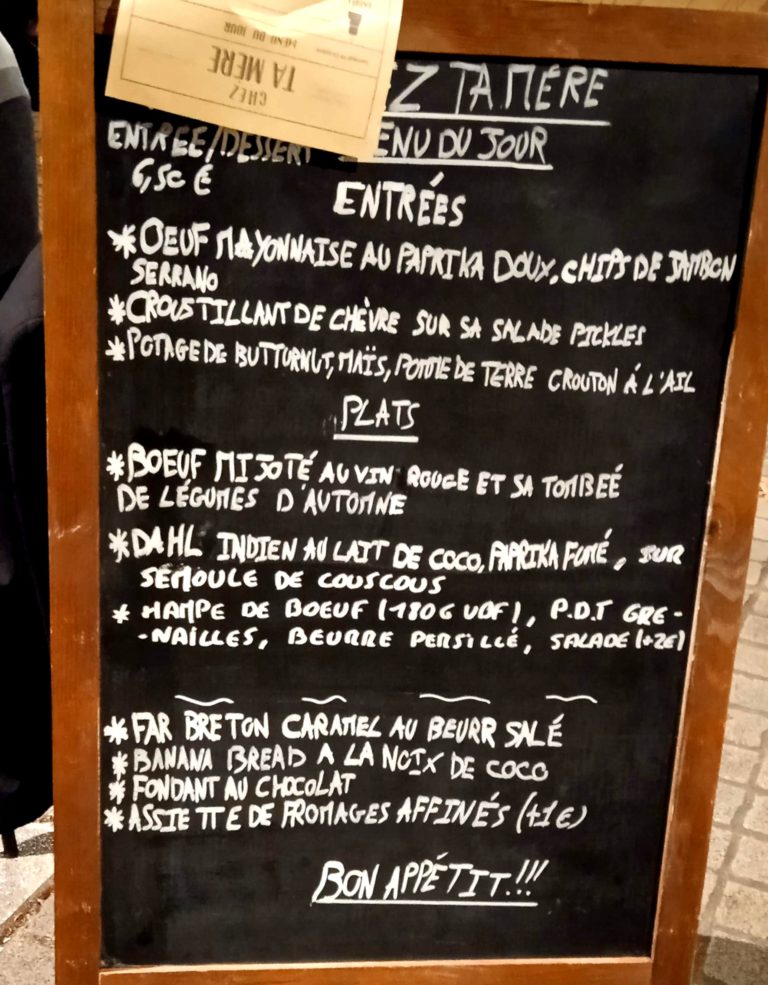 CHEZ
TA MÈRE
MENU DU JOUR
EZ TA MÈRE
ENTRÉE/DESSERT ENU DU JOUR
6,50 €
ENTRÉES
*OEUF MAYONNAISE AU PAPRIKA DOUX, CHIPS DE JAMBON
SERRANO
*CROUSTILLANT DE CHÈVRE SUR SA SALADE PICKLES
*POTAGE DE BUTTURNUT, MAÏS, POMME DE TERRE CROUTON Á L'AIL
PLATS
*BOEUF MIJOTÉ AU VIN ROUGE ET SA TOMBEÉ
DE LÉGUMES D'AUTOMNE
*DAHL INDIEN AU LAIT DE COCO, PAPRIKA FUMÉ, SUR
SEMOULE DE COUSCOUS
* HAMPE DE BOEUF (180G VBF), P.D.T GRE-
-NAILLES, BEURRE PERSILLÉ, SALADE (+2€)
*FAR BRETON CARAMEL AU BEURR SALÉ
*BANANA BREAD A LA NOIX DE COCO
*FONDANT AU CHOCOLAT
*ASSIETTE DE FROMAGES AFFINÉS (+1€)
BON APPÉTIT!!!